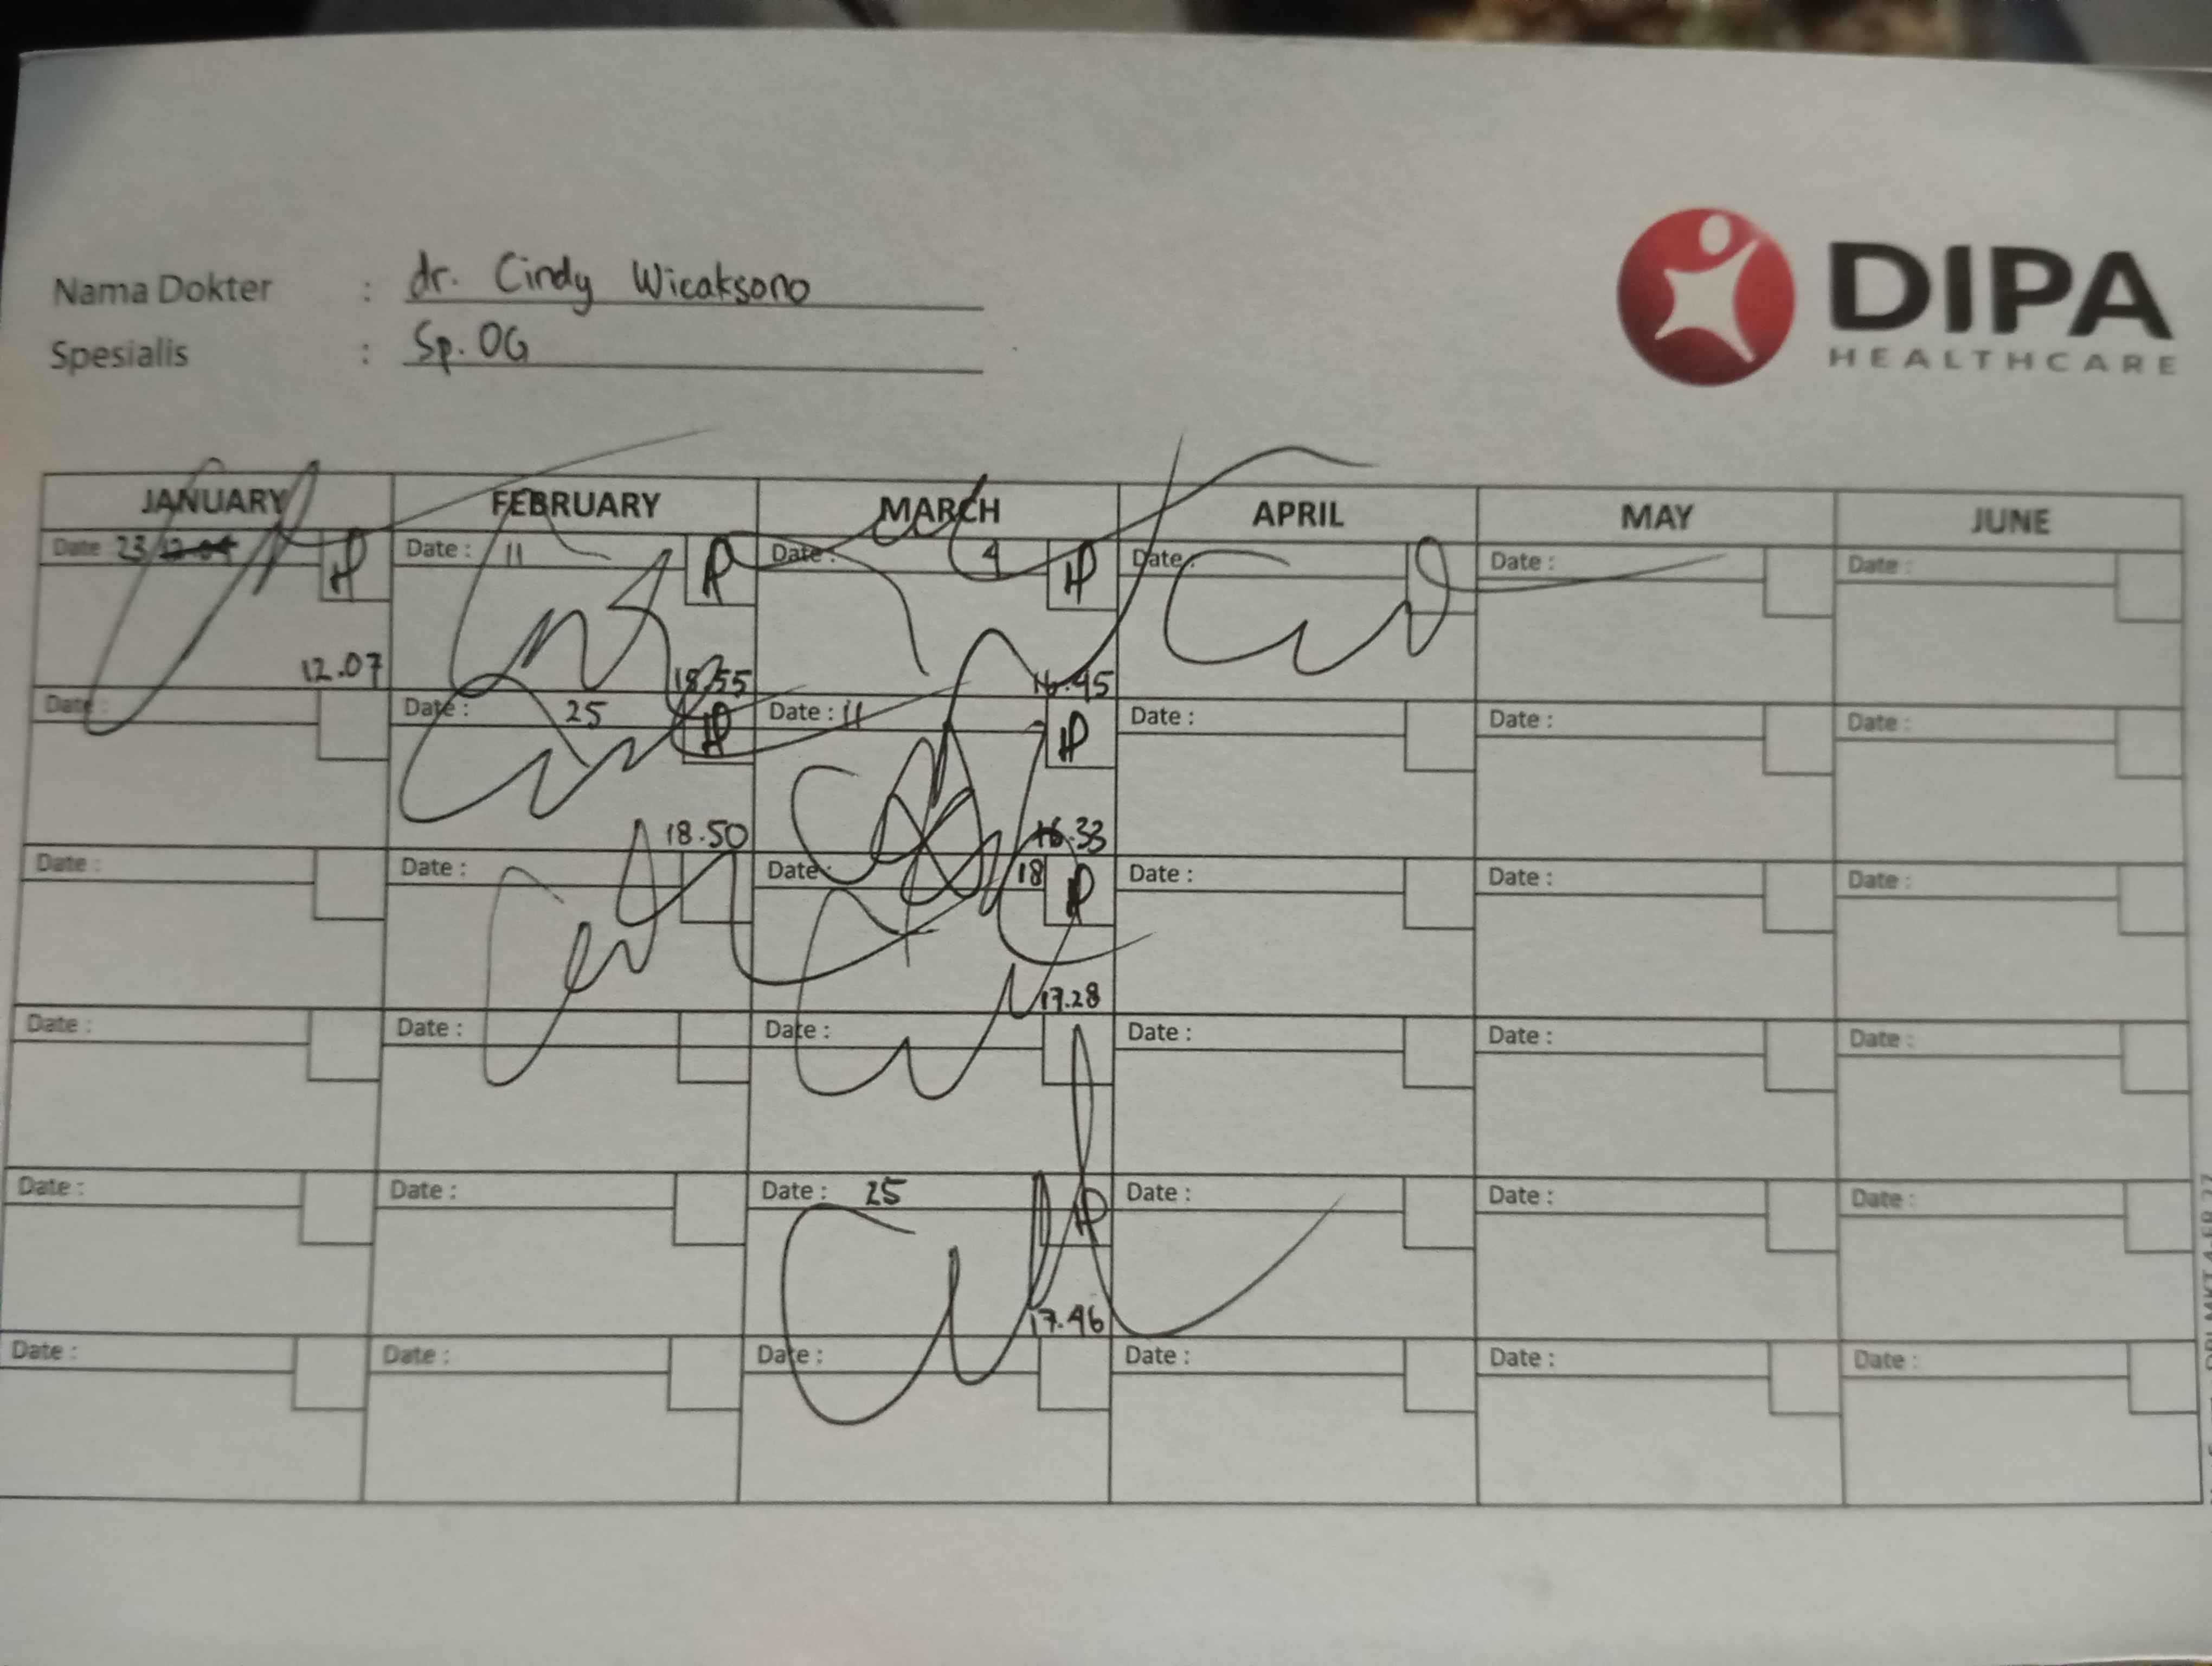 DIPA
HEALTHCARE
Nama Dokter : dr. Cindy Wicaksono
Spesialis : Sp. OG
JANUARY FEBRUARY MARCH APRIL MAY JUNE
Date 23 Date : 11 Date : 4 Date : Date : Date :
12.07 18.55 16.45
Date : Date : 25 Date : 11 Date : Date : Date :
18.50 16.33
Date : Date : Date 18 Date : Date : Date :
17.28
Date : Date : Date : Date : Date : Date :
Date : Date : Date : 25 Date : Date : Date :
17.46
Date : Date : Date : Date : Date : Date :